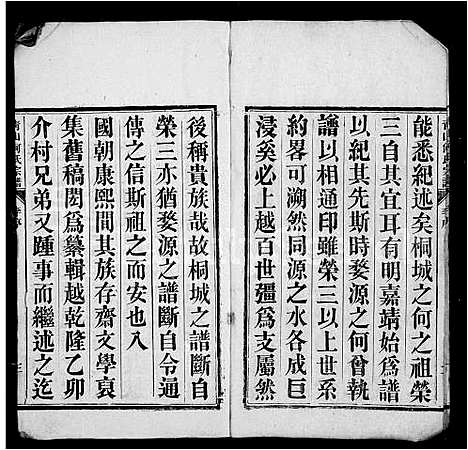 能悉紀述矣桐城之何之祖榮
三自其宜耳有明嘉靖始為譜
以紀其先斯時婺源之何曾執
譜以相通印雖榮三以上世系
約畧可溯然而婺源之水各成巨
浸奚必上越百世彊為支屬然
後稱貴族哉故桐城之譜斷自
榮三亦猶婺源之譜斷自令通
傳之信斯祖之而安也入
國朝康熙間其族存齋文學裒
集舊稿閎為纂輯越乾隆乙卯
介村兄弟又踵事而繼述之迄
青山何氏宗譜